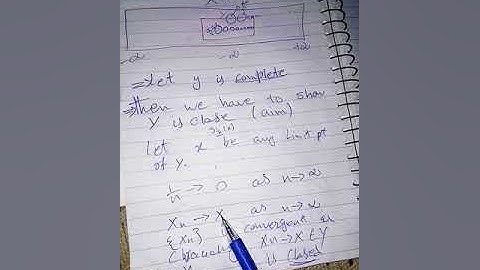 -∞ -∞ +∞
⇒ Let y is complete
⇒ Then we have to show
Y is close (aim)
Let x be any Limit pt
of Y.
1/n → 0 as n→∞
Xn → X as n→∞
{Xn} convergent
Xn→X ∈ Y
is closed